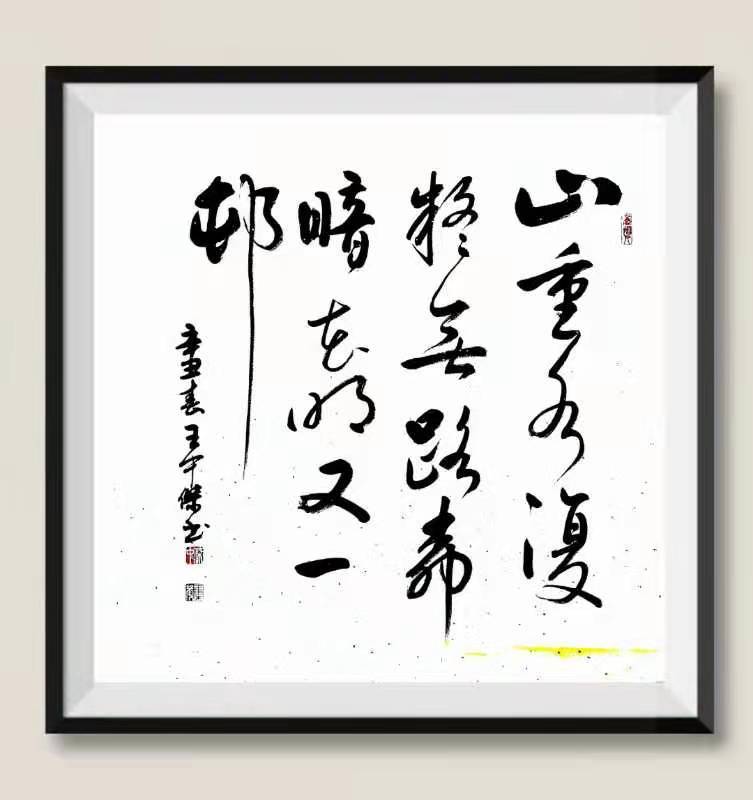 山重水復
疑無路柳
暗花明又一
邨
辛丑春王中傑书